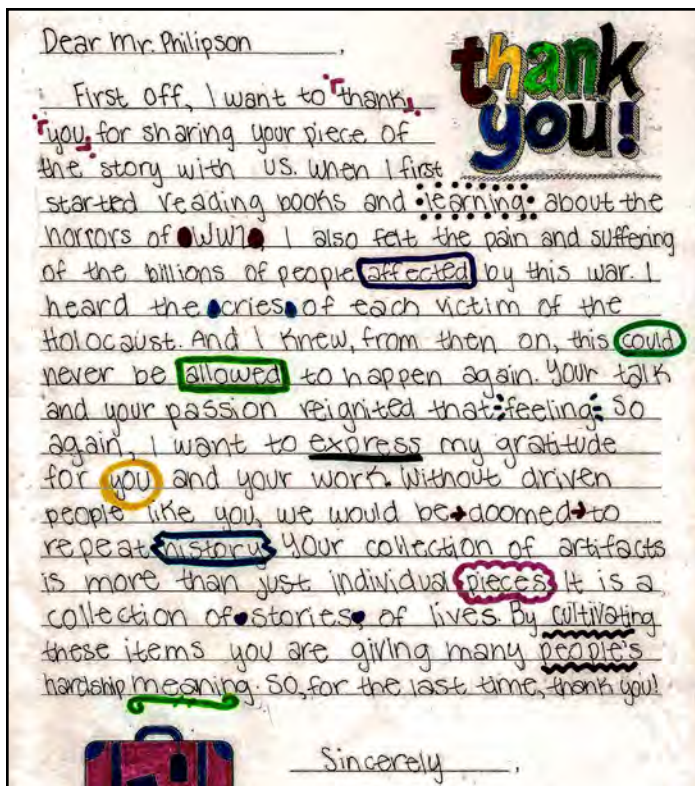 Dear Mr. Philipson,
thank
you!
First off, I want to "thank
you" for sharing your piece of
the story with us. When I first
started reading books and learning about the
horrors of WW2, I also felt the pain and suffering
of the billions of people affected by this war. I
heard the cries of each victim of the
Holocaust. And I knew, from then on, this could
never be allowed to happen again. Your talk
and your passion reignited that feeling so
again, I want to express my gratitude
for you and your work. Without driven
people like you, we would be doomed to
repeat history. Your collection of artifacts
is more than just individual pieces. It is a
collection of stories, of lives. By cultivating
these items you are giving many people's
hardship meaning. So, for the last time, thank you!
Sincerely,